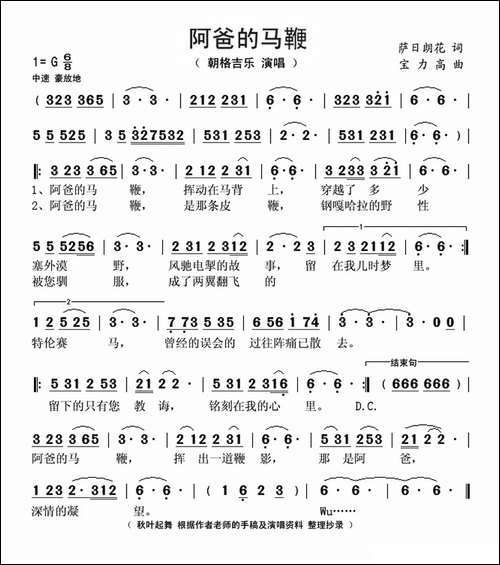 阿爸的马鞭
1=G 6/8
（ 朝格吉乐 演唱 ）
萨日朗花 词
中速 豪放地
宝 力 高 曲
( 323 365 | 3· 3· | 212 231 | 6· 6· | 323 321 | 6· 6· |
5 5 525 | 3· 5 327532 | 2· 2· | 531 531 | 6· 6· | 6· 6· ) |
‖: 3 23 3 65 | 3· 3· | 2 12 2 31 | 6· 6· | 3 233 3 21 | 6· 6· |
1、阿爸的马 鞭， 挥动在马背 上， 穿越了 多 少
2、阿爸的马 鞭， 是那条皮 鞭， 钢嘎哈拉的野 性
5 5 52 56 | 3· 3· | 2 31 2 312 | 6· 6 6 | 23 2112 | 6· 6· :‖
塞外漠 野， 风驰电掣的故 事，留 在我儿时梦 里。
被您驯 服， 成了两翼翻飞 的
1 2 5 25 | 3· 3· | 7 73 5 235 | 6 56 1 74 | 3· 3· | 3· 0 0 |
特伦赛 马， 曾经的误会的 过往阵痛已散 去。
结束句
‖: 5 31 2 53 | 21 2 2· | 5 31 2 316 | 6· 6· :‖ (666 666) |
留下的只有您 教 诲， 铭刻在我的心 里。 D.C.
3 23 3 65 | 3· 3· | 2 12 2 31 | 6· 6· | 5 31 2 53 | 2· 2· |
阿爸的马 鞭， 挥 出一道鞭 影， 那 是阿 爸，
1 23 2· 312 | 6· 6· | (216 531 | 6· 6·) | 6· 6· | 6· 6· ‖
深情的凝 望。 Wu……
（ 秋叶起舞 根据作者老师的手稿及演唱资料 整理抄录 ）